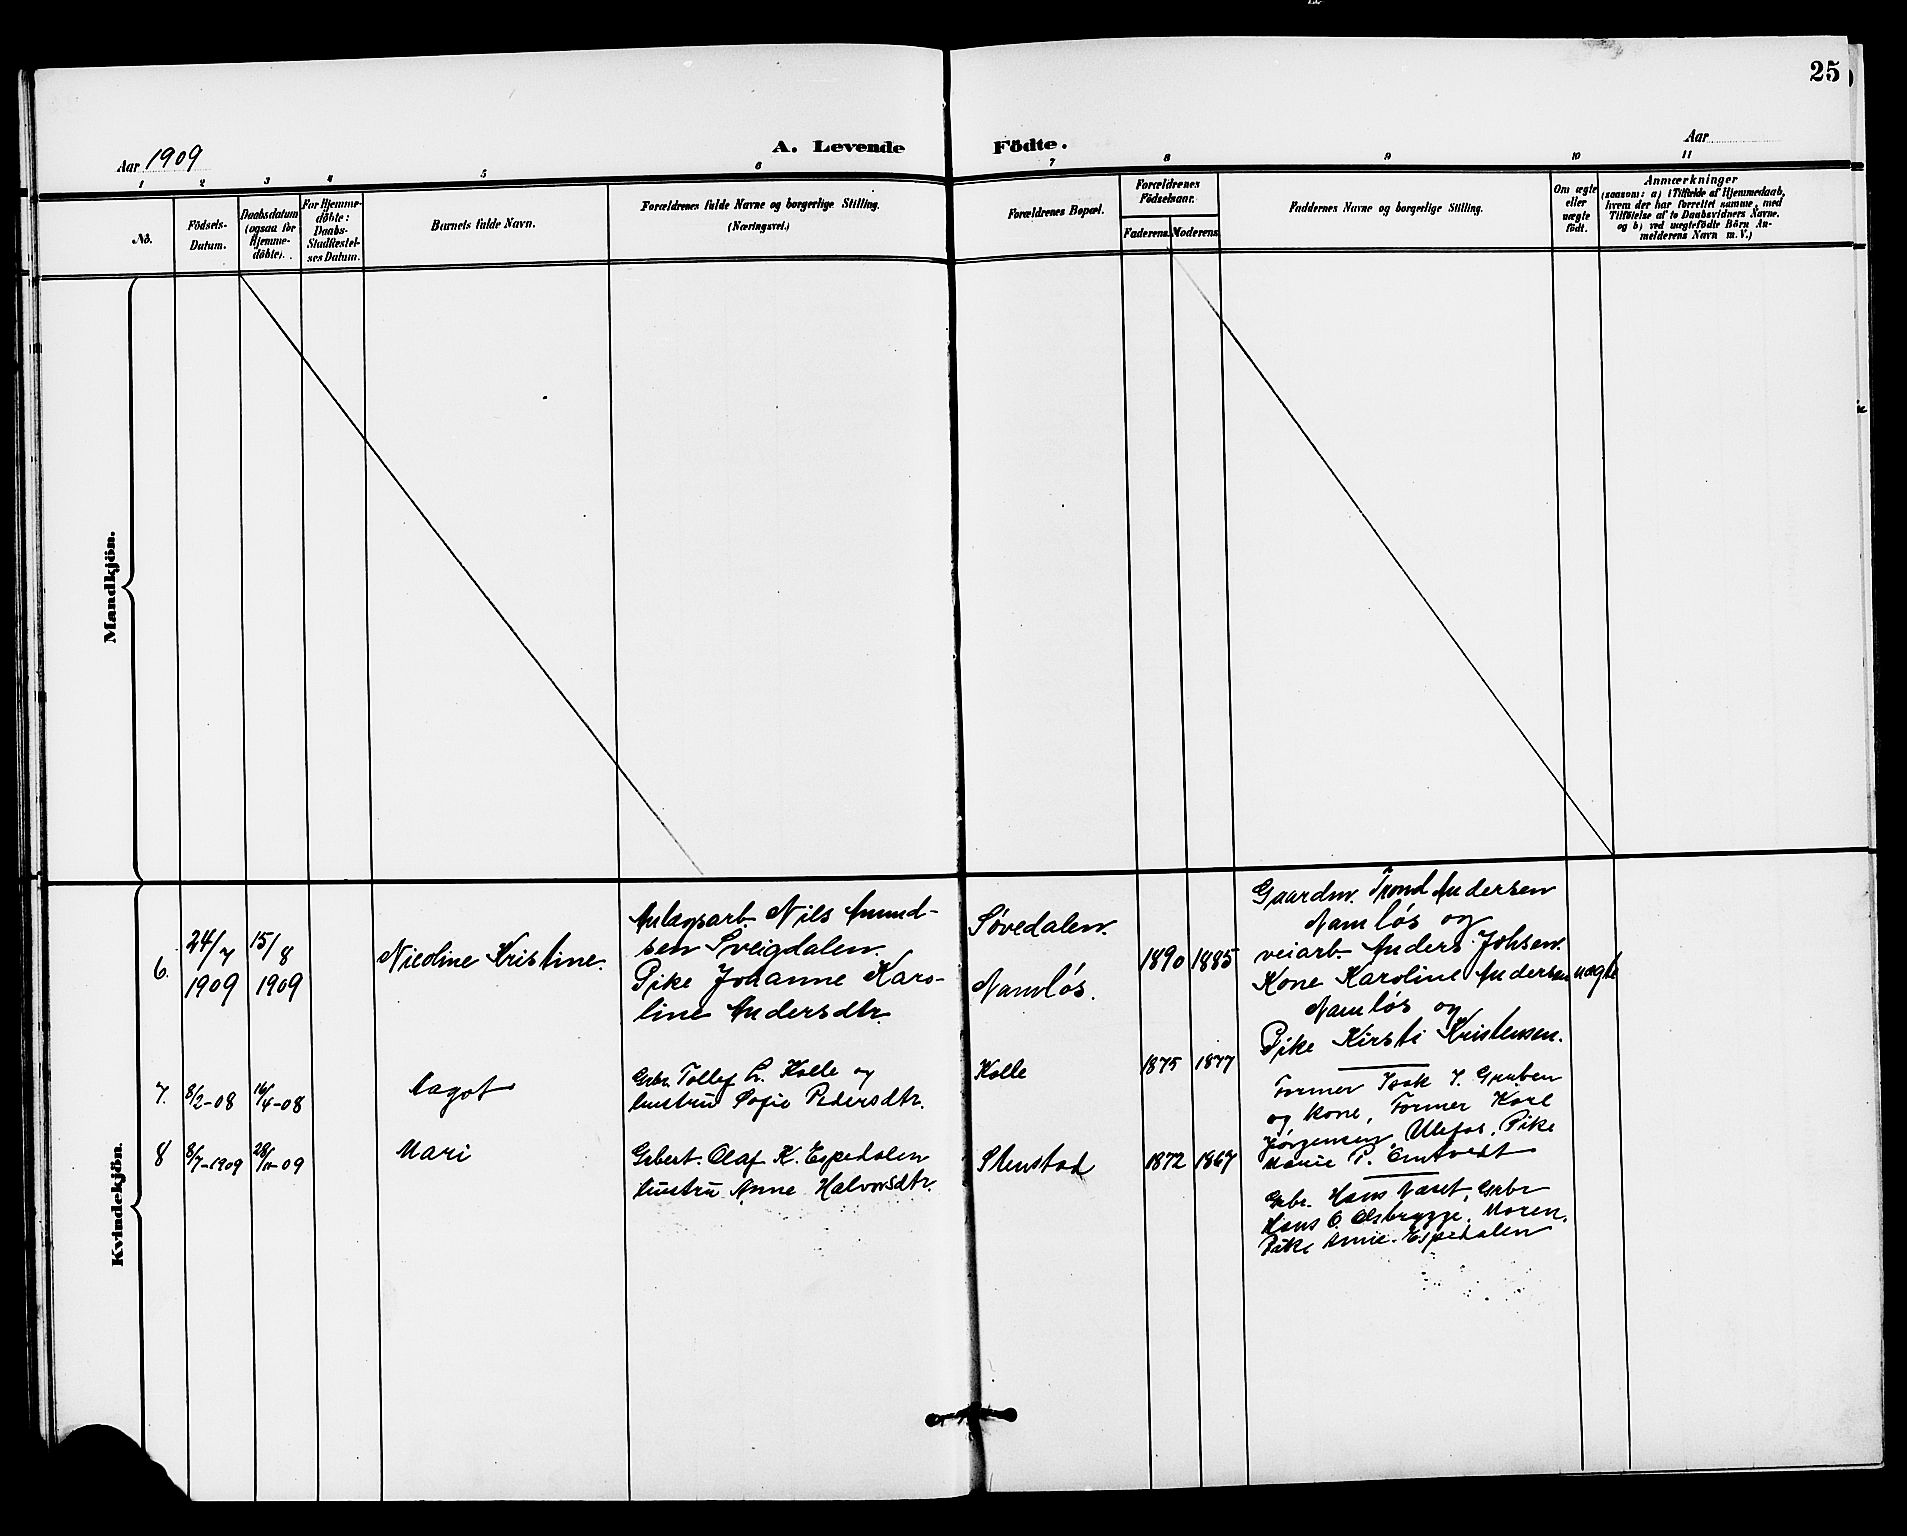 25
Aar 1909
A. Levende Födte.
Aar
1 2 3 4 5 6 7 8 9 10 11
No.
Födsels-
Datum.
Daabsdatum
(ogsaa for
Hjemme-
döbte).
For Hjemme-
döbte:
Daabs-
Stadfæstel-
ses Datum.
Barnets fulde Navn.
Forældrenes fulde Navne og borgerlige Stilling.
(Næringsvei.)
Forældrenes Bopæl.
Forældrenes
Födselsaar.
Faderens. Moderens.
Faddernes Navne og borgerlige Stilling.
Om ægte
eller
uægte
födt.
Anmærkninger
(saasom: a) i Tilfælde af Hjemmedaab,
hvem der har forrettet samme, med
Tilföielse af to Daabsvidners Navne.
og b) ved uægtefödte Börn An-
melderens Navn m. V.)
Mandkjön.
Kvindekjön.
6.
24/7
1909
15/8
1909
Nicoline Kristine.
Anlægsarb. Nils Amund-
sen Sveigdalen.
Pike Johanne Karo-
line Andersdtr.
Søvedalen.
Namløs.
1890 1885
Gaardm. Trond Andersen
Namløs og
veiarb. Anders Johsen.
Kone Karoline Andersen
Namløs og
Pike Kirsti Kristensen.
uægte
7. 8/2-08 /4-08
Aagot
Gbr. Tollef L. Kolle og
hustru Sofie Pedersdtr.
Kolle
1875 1877
Former Isak I. Gruben
og kone, Former Karl
Jørgensen, Ulefos, Pike
Marie P. Omtvedt
8 8/7-1909 28/11-09
Mari
Gbest. Olaf K. Espedalen
hustru Anne Halvorsdtr.
Stenstad
1872 1867
Gbr. Hans Næset, Gbr
Hans O. Olsbrygge, Maren,
Pike Anne Espedalen